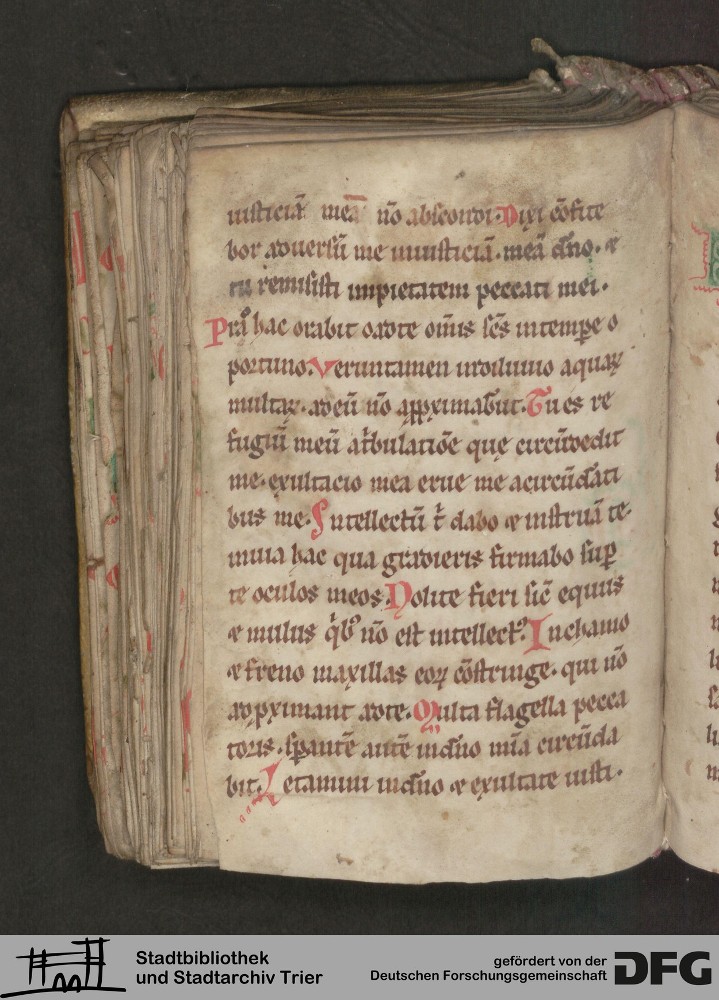 iusticiā meā nō abscondi. Dixi cōfite
bor aduersū me iniusticiā. meā dn̄o. ⁊
tu remisisti impietatem peccati mei.
Pro hac orabit adte om̄is scs̄ intempe o
portuno. Veruntamen indiluuio aquaꝝ
multaꝝ. adeū nō approximabūt. Tu es re
fugiū meū atbulatiōe que circūdedit
me. exultacio mea erue me acircūdāti
bus me. Intellectū t̄ dabo ⁊ instruā te.
inuia hac qua gradieris firmabo sup
te oculos meos. Nolite fieri sic̄ equus
⁊ mulus qͥbꝰ nō est intellectꝰ. Inchamo
⁊ freno maxillas eoꝝ cōstringe. qui nō
adpximant adte. Multa flagella pecca
toris. spantē autē indn̄o mīa circūda
bit. Letamini indn̄o ⁊ exultate iusti.
Stadtbibliothek
und Stadtarchiv Trier
gefördert von der
Deutschen Forschungsgemeinschaft
DFG